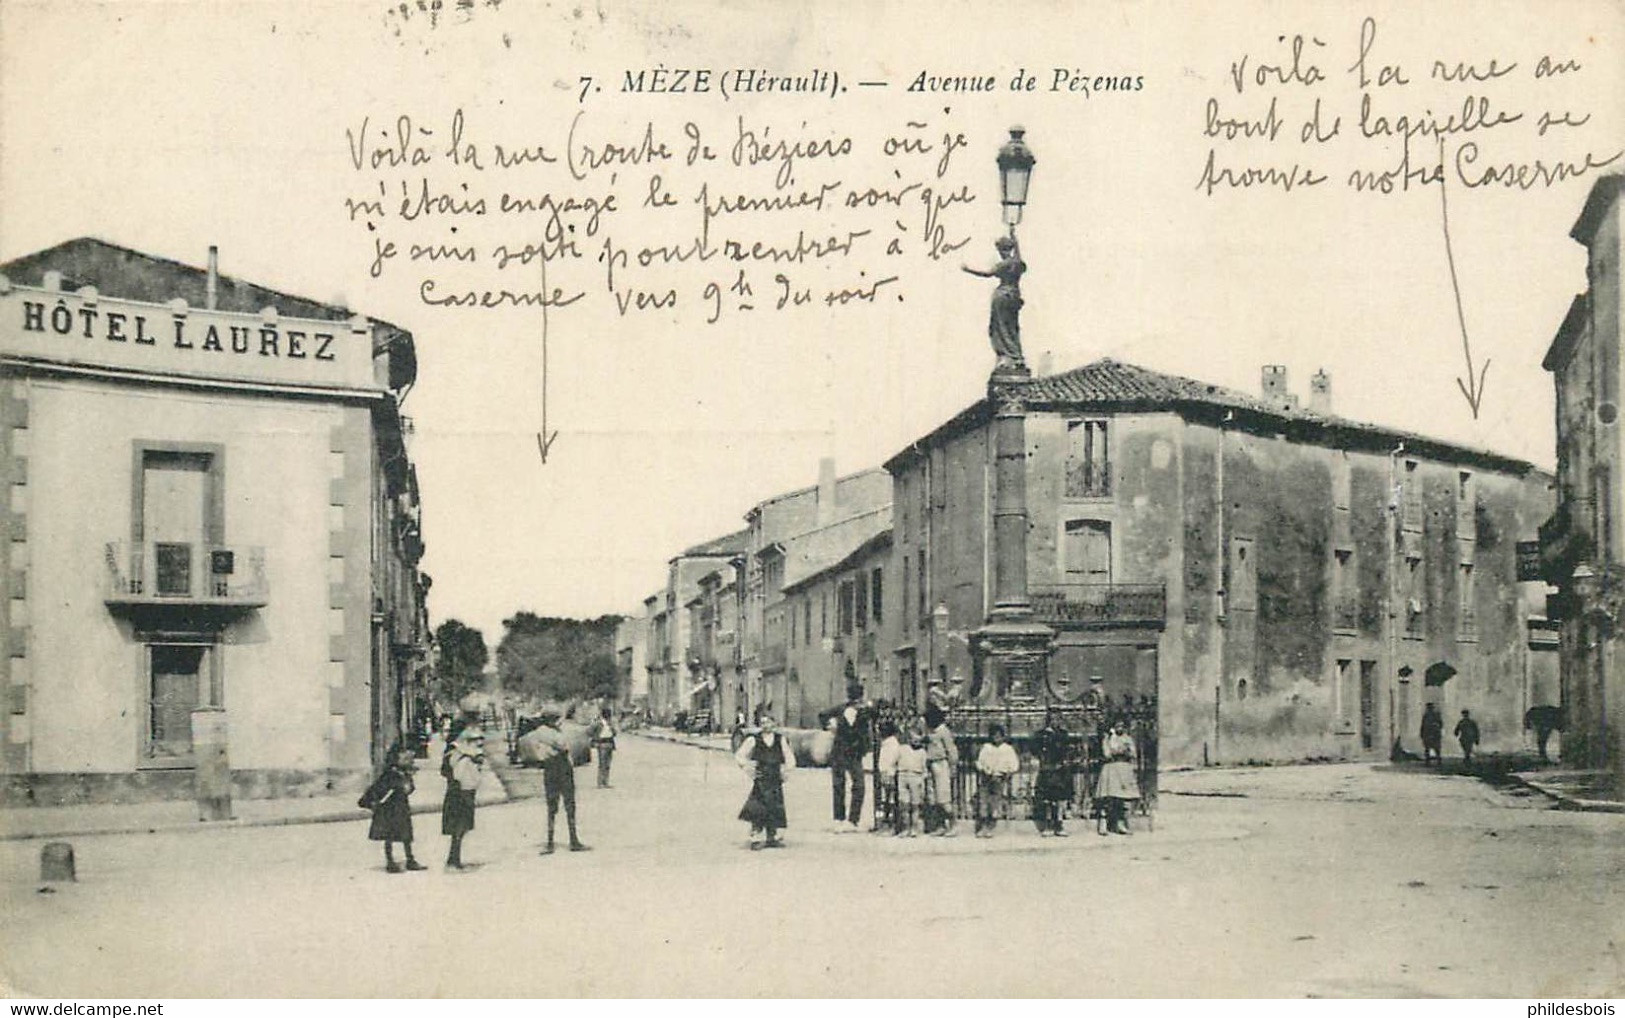 7. MÈZE (Hérault). — Avenue de Pézenas
Voilà la rue (route de Béziers où je
m'étais engagé le premier soir que
je suis sorti pour rentrer à la
Caserne vers 9h du soir.
Voilà la rue au
bout de laquelle se
trouve notre Caserne
HÔTEL LAUREZ
phildesbois